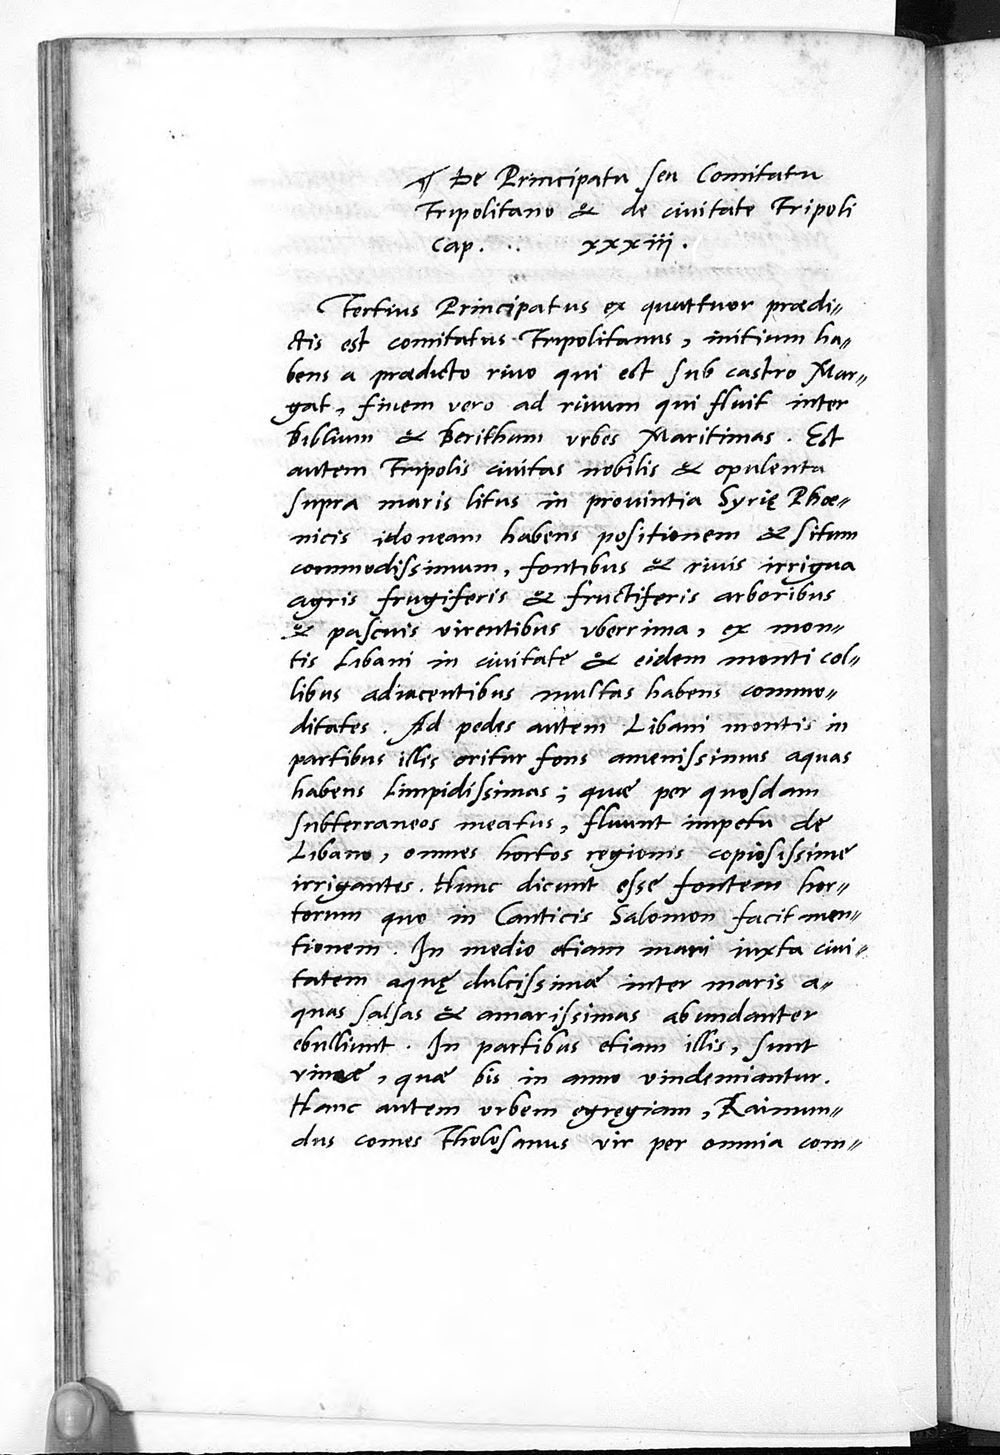 ¶ De Principatu seu Comitatu
Tripolitano & de ciuitate Tripoli
Cap. .. xxxiii .
Tertius Principatus ex quattuor prædi〃
ctis est comitatus Tripolitanus, initium ha〃
bens a prædicto riuo qui est sub castro Mar〃
gat, finem vero ad riuum qui fluit inter
biblium & beritham vrbes Maritimas. Est
autem Tripolis ciuitas nobilis & opulenta
supra maris litus in prouintia Syrię Phœ〃
nicis idoneam habens positionem & situm
commodissimum, fontibus & riuis irrigua
agris frugiferis & fructiferis arboribus
& pascuis virentibus vberrima, ex mon〃
tis Libani in ciuitate & eidem monti col〃
libus adiacentibus multas habens commo〃
ditates. Ad pedes autem Libani montis in
partibus illis oritur fons amenissimus aquas
habens limpidissimas; quæ per quosdam
subterraneos meatus, fluunt impetu de
Libano, omnes hortos regionis copiosissime
irrigantes. Hunc dicunt esse fontem hor〃
torum quo in Canticis Salomon facit men〃
tionem. In medio etiam mari iuxta ciui〃
tatem aquę dulcissimæ inter maris a〃
quas salsas & amarissimas abundanter
ebulliunt. In partibus etiam illis, sunt
vineæ, quæ bis in anno vindemiantur.
Hanc autem vrbem egregiam, Raimun〃
dus comes Tholosanus vir per omnia com〃